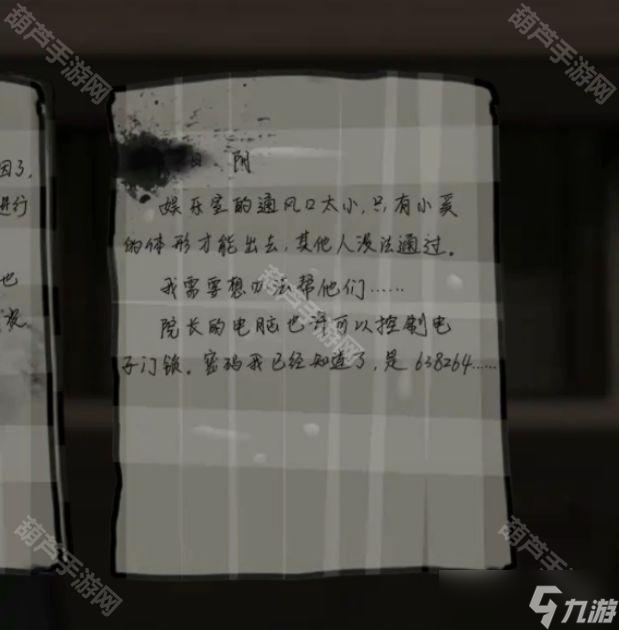 日 阴
娱乐室的通风口太小，只有小奚
的体形才能出去，其他人没法通过。
我需要想办法帮他们……
院长的电脑也许可以控制电
子门锁。密码我已经知道了，是638264……
因了，
进行
也
葫芦手游网
葫芦手游网
葫芦手游网
葫芦手游网
葫芦手游网
九游